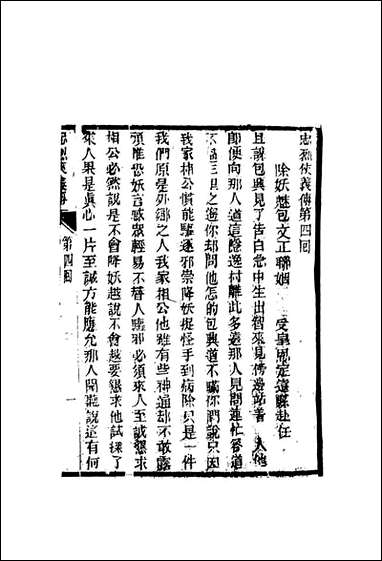 忠烈俠義傳第四回
除妖魅包文正聯姻 受皇恩定遠縣赴任
且說包興見了告白急中生出智來見傍邊站著一人他
卽便向那人道這隱逸村離此多遠那人見問連忙答道
不過三里之遙你却問他怎的包興道不瞞你們說只因
我家相公慣能驅逐邪崇降妖捉怪手到病除只是一件
我們原是外鄉之人我家相公他雖有些神通却不敢露
頭惟恐妖言惑眾輕易不替人驅邪必須來人至誠懇求
相公必然說是不會降妖越說不會越要懇求他試探了
來人果是眞心一片至誠方能應允那人聞聽說這有何
忠烈俠義傳
第四回
一